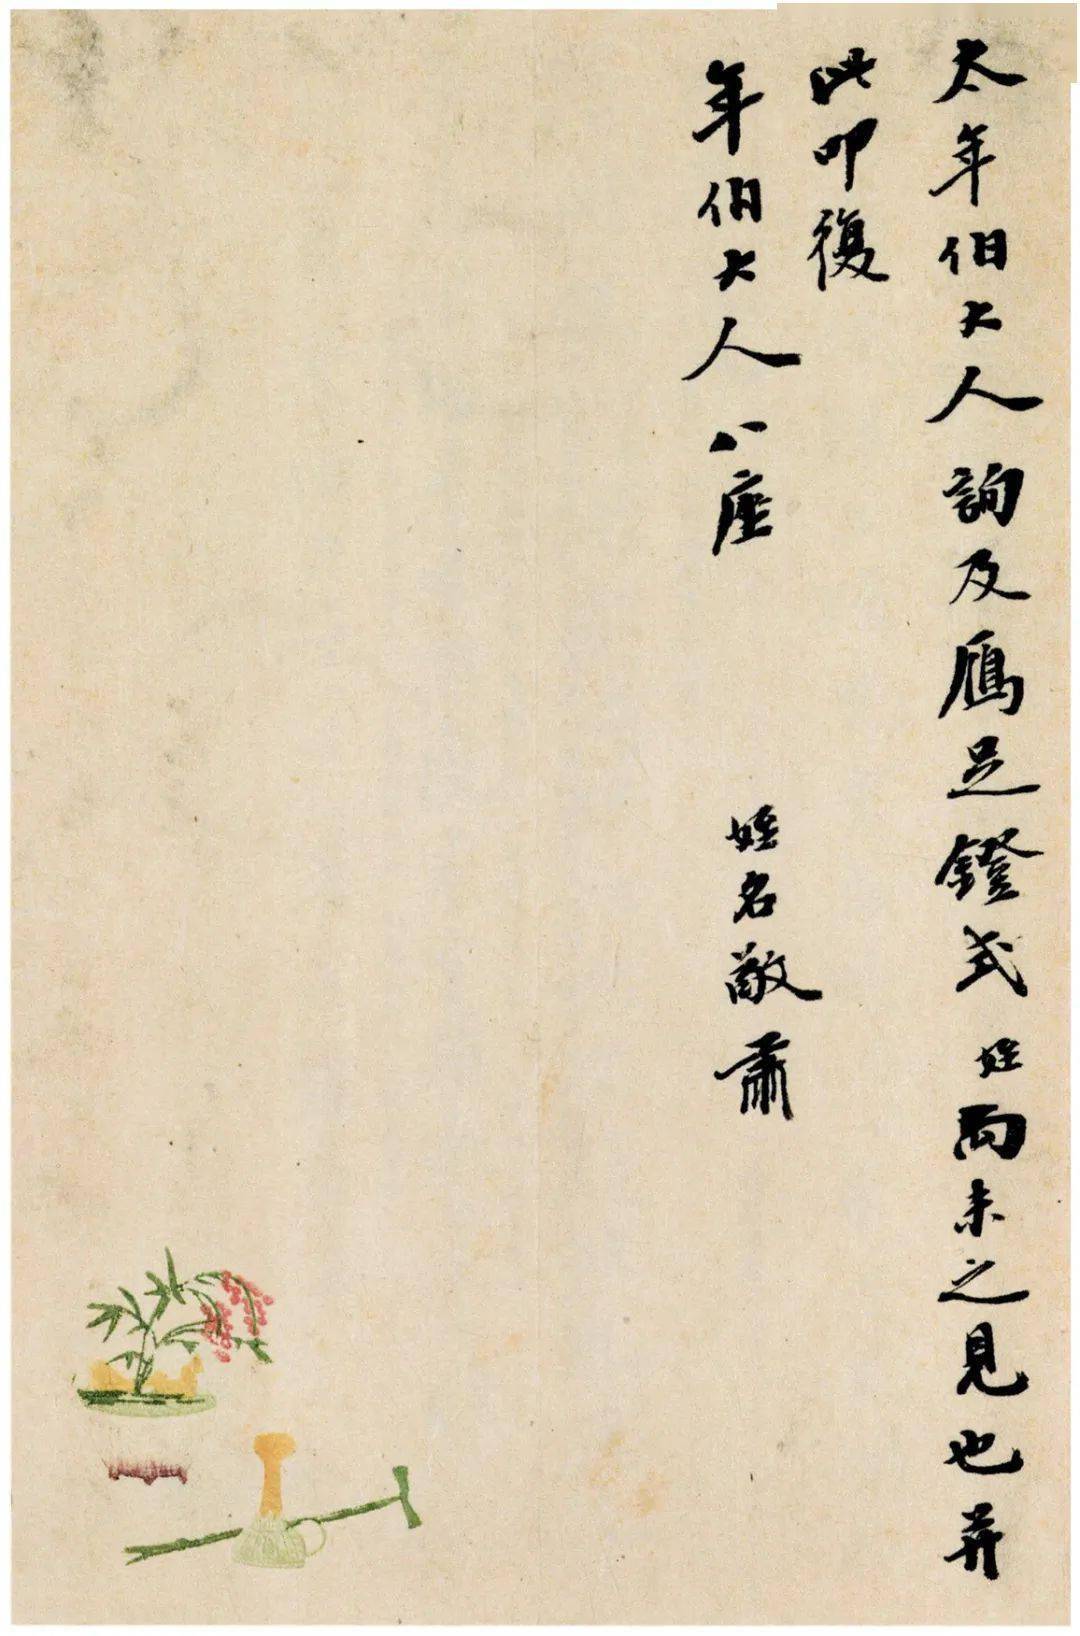 太年伯大人詢及鴈足鐙式姪兩未之見也并
此叩復
年伯大人八座
姪名敬肅